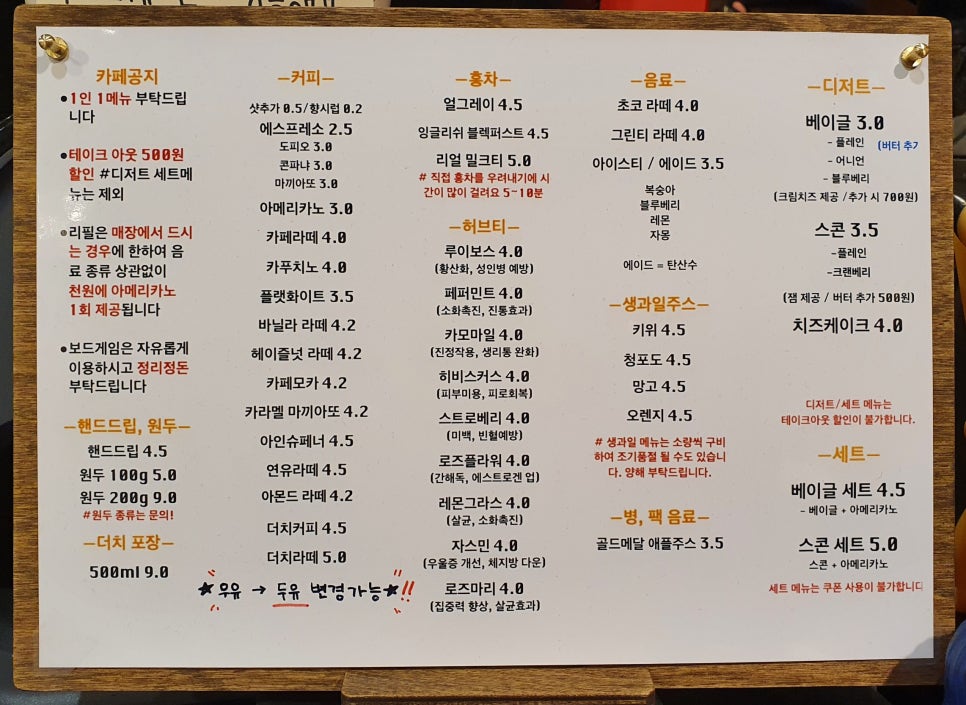 카페공지
●1인 1메뉴 부탁드립
니다
●테이크 아웃 500원
할인 #디저트 세트메
뉴는 제외
●리필은 매장에서 드시
는 경우에 한하여 음
료 종류 상관없이
천원에 아메리카노
1회 제공됩니다
●보드게임은 자유롭게
이용하시고 정리정돈
부탁드립니다
—핸드드립, 원두—
핸드드립 4.5
원두 100g 5.0
원두 200g 9.0
#원두 종류는 문의!
—더치 포장—
500ml 9.0
—커피—
샷추가 0.5/향시럽 0.2
에스프레소 2.5
도피오 3.0
콘파냐 3.0
마끼아또 3.0
아메리카노 3.0
카페라떼 4.0
카푸치노 4.0
플랫화이트 3.5
바닐라 라떼 4.2
헤이즐넛 라떼 4.2
카페모카 4.2
카라멜 마끼아또 4.2
아인슈페너 4.5
연유라떼 4.5
아몬드 라떼 4.2
더치커피 4.5
더치라떼 5.0
★우유 → 두유 변경가능★!!
—홍차—
얼그레이 4.5
잉글리쉬 블렉퍼스트 4.5
리얼 밀크티 5.0
# 직접 홍차를 우려내기에 시
간이 많이 걸려요 5~10분
—허브티—
루이보스 4.0
(황산화, 성인병 예방)
페퍼민트 4.0
(소화촉진, 진통효과)
카모마일 4.0
(진정작용, 생리통 완화)
히비스커스 4.0
(피부미용, 피로회복)
스트로베리 4.0
(미백, 빈혈예방)
로즈플라워 4.0
(간해독, 에스트로겐 업)
레몬그라스 4.0
(살균, 소화촉진)
자스민 4.0
(우울증 개선, 체지방 다운)
로즈마리 4.0
(집중력 향상, 살균효과)
—음료—
초코 라떼 4.0
그린티 라떼 4.0
아이스티 / 에이드 3.5
복숭아
블루베리
레몬
자몽
에이드 = 탄산수
—생과일주스—
키위 4.5
청포도 4.5
망고 4.5
오렌지 4.5
# 생과일 메뉴는 소량씩 구비
하여 조기품절 될 수도 있습니
다. 양해 부탁드립니다.
—병, 팩 음료—
골드메달 애플주스 3.5
—디저트—
베이글 3.0
- 플레인 (버터 추가
- 어니언
- 블루베리
(크림치즈 제공 /추가 시 700원)
스콘 3.5
-플레인
-크랜베리
(잼 제공 / 버터 추가 500원)
치즈케이크 4.0
디저트/세트 메뉴는
테이크아웃 할인이 불가합니다.
—세트—
베이글 세트 4.5
- 베이글 + 아메리카노
스콘 세트 5.0
스콘 + 아메리카노
세트 메뉴는 쿠폰 사용이 불가합니다